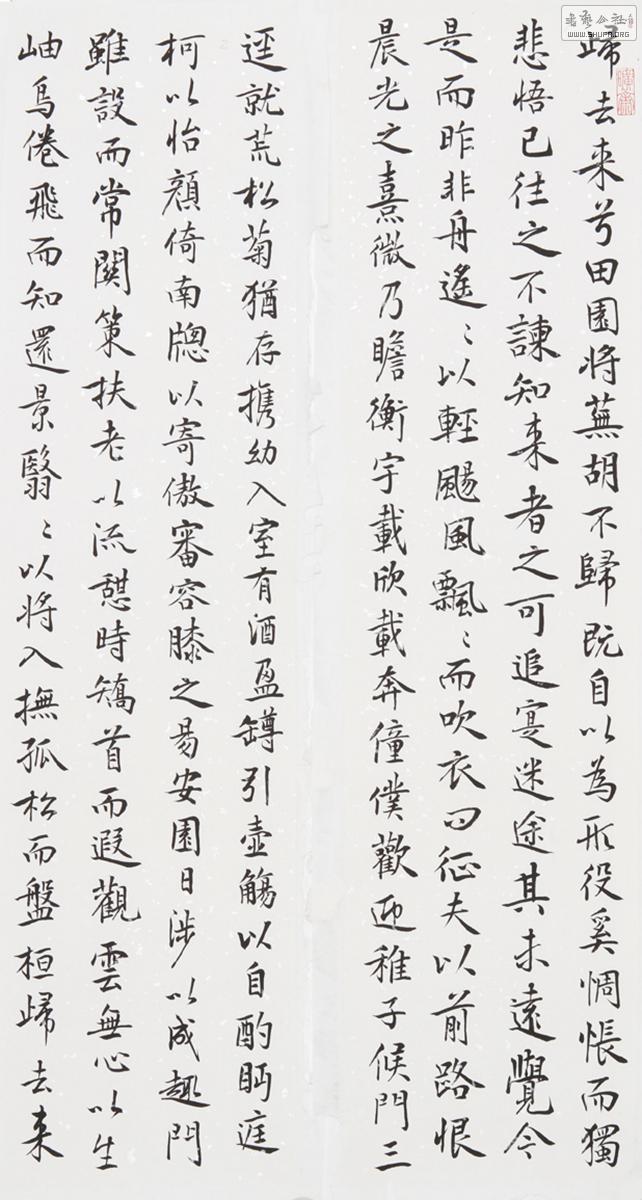 書藝公社
WWW.SHUFA.ORG
歸去来兮田園將蕪胡不歸既自以為形役奚惆悵而獨
悲悟已往之不諫知来者之可追寔迷途其未遠覺今
是而昨非舟遙〻以輕颺風飄〻而吹衣問征夫以前路恨
晨光之熹微乃瞻衡宇載欣載奔僮僕歡迎稚子候門三
逕就荒松菊猶存携幼入室有酒盈罇引壺觴以自酌眄庭
柯以怡顏倚南牕以寄傲審容膝之易安園日涉以成趣門
雖設而常関策扶老以流憩時矯首而遐觀雲無心以出
岫鳥倦飛而知還景翳〻以將入撫孤松而盤桓歸去来